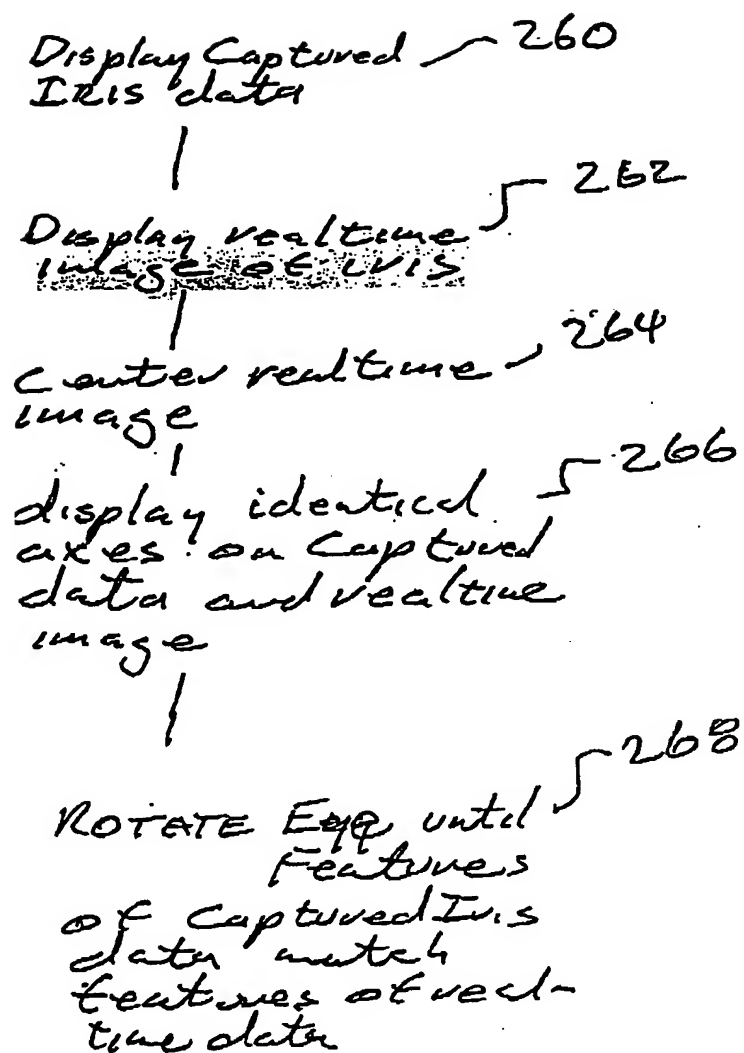 Display Captured 260
IRIS data
262
Display realtime
image of iris
264
Center realtime
image
266
display identical
axes on Captured
data and realtime
image
268
ROTATE Eye until
Features
of Captured Iris
data match
features of real-
time data